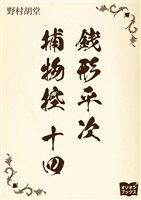 野村胡堂
銭形平次
捕物控 十四
オリオン
ブックス